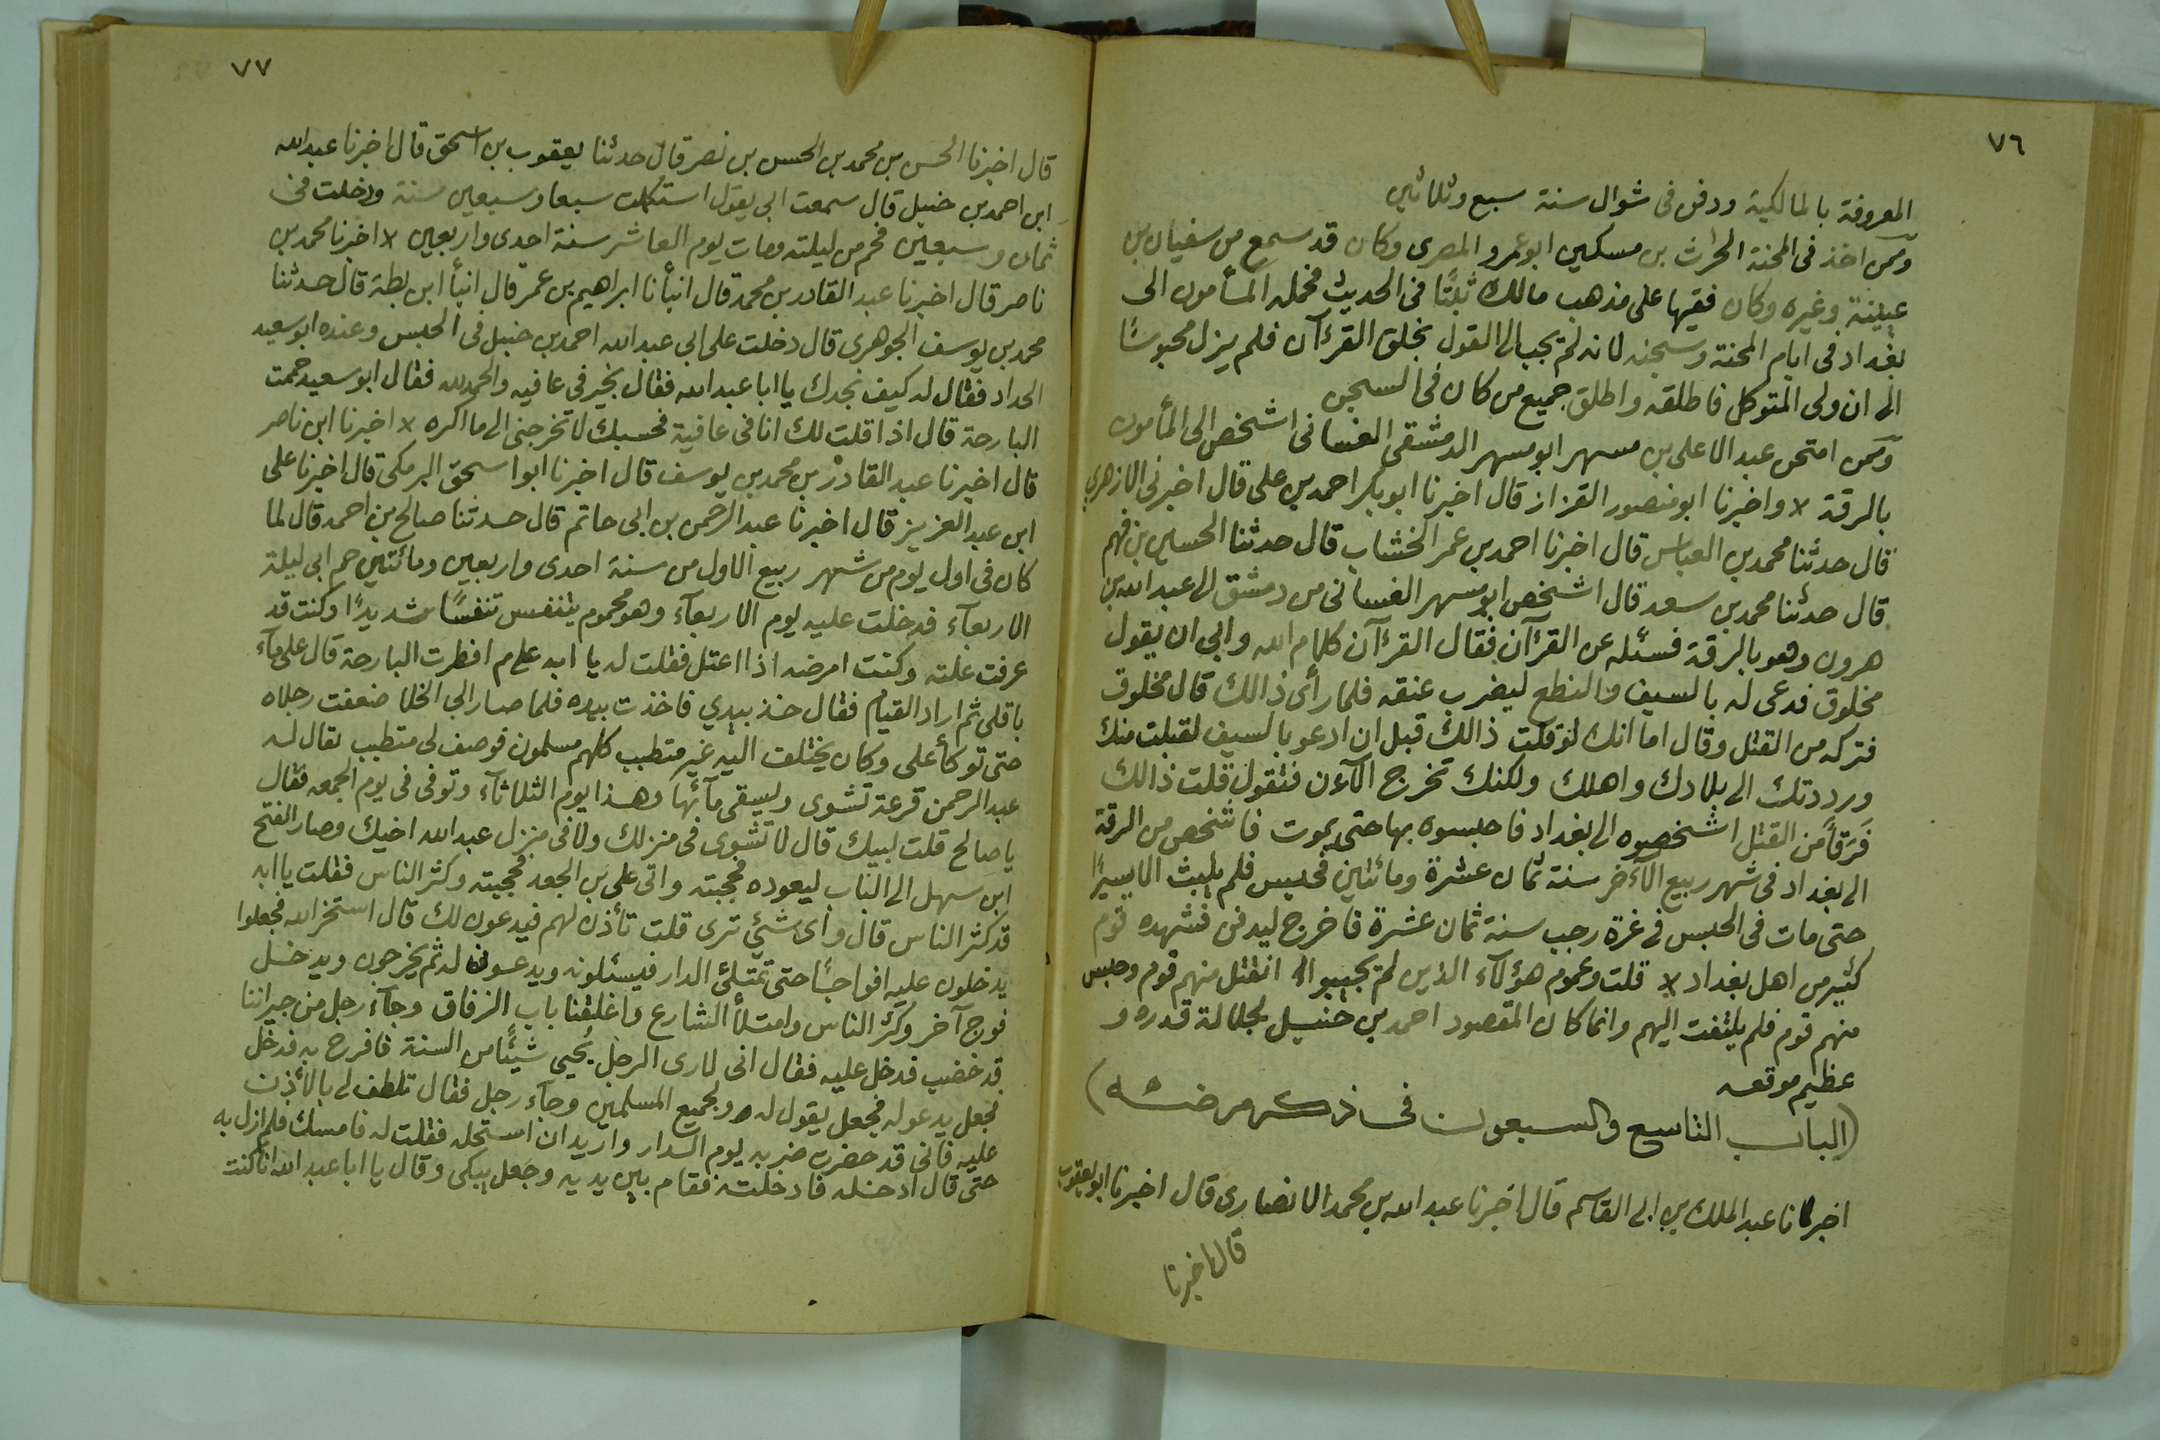 ٧٦
المعروفة بالمالكية ودفن فى شوال سنة سبع وثلاثين
وممن اخذ فى المحنة الحرث بن مسكين ابو عمرو المصرى وكان قد سمع من سفيان بن
عيينة وغيره وكان فقيها على مذهب مالك ثبتًا فى الحديث فحمله المأمون الى
بغداد فى ايام المحنة وسجنه لانه لم يجب الى القول بخلق القرءآن فلم يزل محبوسًا
الى ان ولى المتوكل فاطلقه واطلق جميع من كان فى السجن
وممن امتحن عبد الاعلى بن مسهر ابو مسهر الدمشقى الغسانى اشخص الى المأمون
بالرقة لا واخبرنا ابو منصور القزاز قال اخبرنا ابو بكر احمد بن على قال اخبرنى الازهري
قال حدثنا محمد بن العباس قال اخبرنا احمد بن عمر الخشاب قال حدثنا الحسين بن فهم
قال حدثنا محمد بن سعد قال اشخص ابو مسهر الغسانى من دمشق الى عبد الله بن
هرون وهو بالرقة فسئله عن القرءآن فقال القرءآن كلام الله وابى ان يقول
مخلوق فدعى له بالسيف والنطع ليضرب عنقه فلما رأى ذالك قال مخلوق
فتركه من القتل وقال اما انك لو قلت ذالك قبل ان ادعو بالسيف لقبلت منك
ورددتك الى بلادك واهلك ولكنك تخرج الآءن فتقول قلت ذالك
فَرَقاً من القتل اشخصوه الى بغداد فاحبسوه بها حتى يموت فاشخص من الرقة
الى بغداد فى شهر ربيع الآءخر سنة ثمان عشرة ومائتين فحبس فلم يلبث الا يسيرًا
حتى مات فى الحبس فى غرة رجب سنة ثمان عشرة فاخرج ليدفن فشهده قوم
كثير من اهل بغداد لا قلت وعموم هؤلآء الذين لم يجيبوا انقتل منهم قوم وحبس
منهم قوم فلم يلتفت اليهم وانما كان المقصود احمد بن حنبل لجلالة قدره و
عظيم موقعه
(الباب التاسع والسبعون فى ذكر مرضه)
اخبرنا عبد الملك بن ابى القاسم قال اخبرنا عبد الله بن محمد الانصارى قال اخبرنا ابو يعقوب
قال اخبرنا
٧٧
قال اخبرنا الحسن بن محمد بن الحسن بن نصر قال حدثنا يعقوب بن اسحق قال اخبرنا عبد الله
ابن احمد بن حنبل قال سمعت ابى يقول استكملت سبعا وسبعين سنة ودخلت فى
ثمان وسبعين فحم من ليلته ومات يوم العاشر سنة احدى واربعين لا اخبرنا محمد بن
ناصر قال اخبرنا عبد القادر بن محمد قال انبأنا ابراهيم بن عمر قال انبأ ابن بطة قال حدثنا
محمد بن يوسف الجوهرى قال دخلت على ابى عبد الله احمد بن حنبل فى الحبس وعنده ابو سعيد
الحداد فقال له كيف نجدك يا ابا عبد الله فقال بخير فى عافيه والحمد لله فقال ابو سعيد حممت
البارحة قال اذا قلت لك انا فى عافية فحسبك لا تخرجنى الى ما اكره لا اخبرنا ابن ناصر
قال اخبرنا عبد القادر بن محمد بن يوسف قال اخبرنا ابو اسحق البرمكى قال اخبرنا على
ابن عبد العزيز قال اخبرنا عبد الرحمن بن ابى حاتم قال حدثنا صالح بن احمد قال لما
كان فى اول يوم من شهر ربيع الاول من سنة احدى واربعين ومائتين حم ابى ليلة
الاربعآء فدخلت عليه يوم الاربعآء وهو محموم يتنفس تنفسًا شديدًا وكنت قد
عرفت علته وكنت امرضه اذا اعتل فقلت له يا ابه على م افطرت البارحة قال على مآء
باقلى ثم اراد القيام فقال خذ بيدي فاخذت بيده فلما صار الى الخلا ضعفت رجلاه
حتى توكأ على وكان يختلف اليه غير متطبب كلهم مسلمون فوصف لى متطبب يقال له
عبد الرحمن قرعة تشوى ويسقى مآئها وهذا يوم الثلاثآء وتوفى فى يوم الجمعه فقال
يا صالح قلت لبيك قال لا تشوى فى منزلك ولا فى منزل عبد الله اخيك وصار الفتح
ابن سهل الى الباب ليعوده فحجبته واتى على بن الجعد فحجبته وكثر الناس فقلت يا ابه
قد كثر الناس قال وأى شئي ترى قلت تأذن لهم فيدعون لك قال استخر الله فجعلوا
يدخلون عليه افواجًا حتى تمتلئ الدار فيسئلونه ويدعون له ثم يخرجون ويدخل
فوج آخر وكثر الناس وامتلأ الشارع واغلقنا باب الزقاق وجآء رجل من جيراننا
قد خضب فدخل عليه فقال انى لارى الرجل يُحيى شيئًا من السنة فافرح به فدخل
فجعل يدعو له فجعل يقول له ولجميع المسلمين وجآء رجل فقال تلطف لى بالأذن
عليه فانى قد حضرت ضربه يوم الدار واريد ان استحله فقلت له فامسك فلم ازل به
حتى قال ادخله فادخلته فقام بين يديه وجعل يبكى وقال يا ابا عبد الله انا كنت